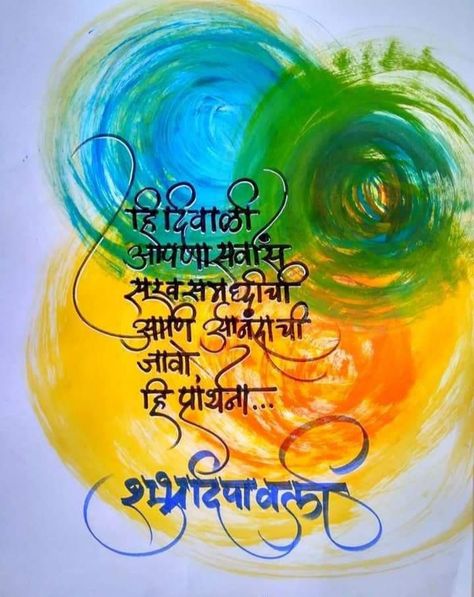 हि दिवाळी
आपणा सर्वांस
सुख समृध्दीची
आणि आनंदाची
जावो
हि प्रार्थना...
शुभदिपावली